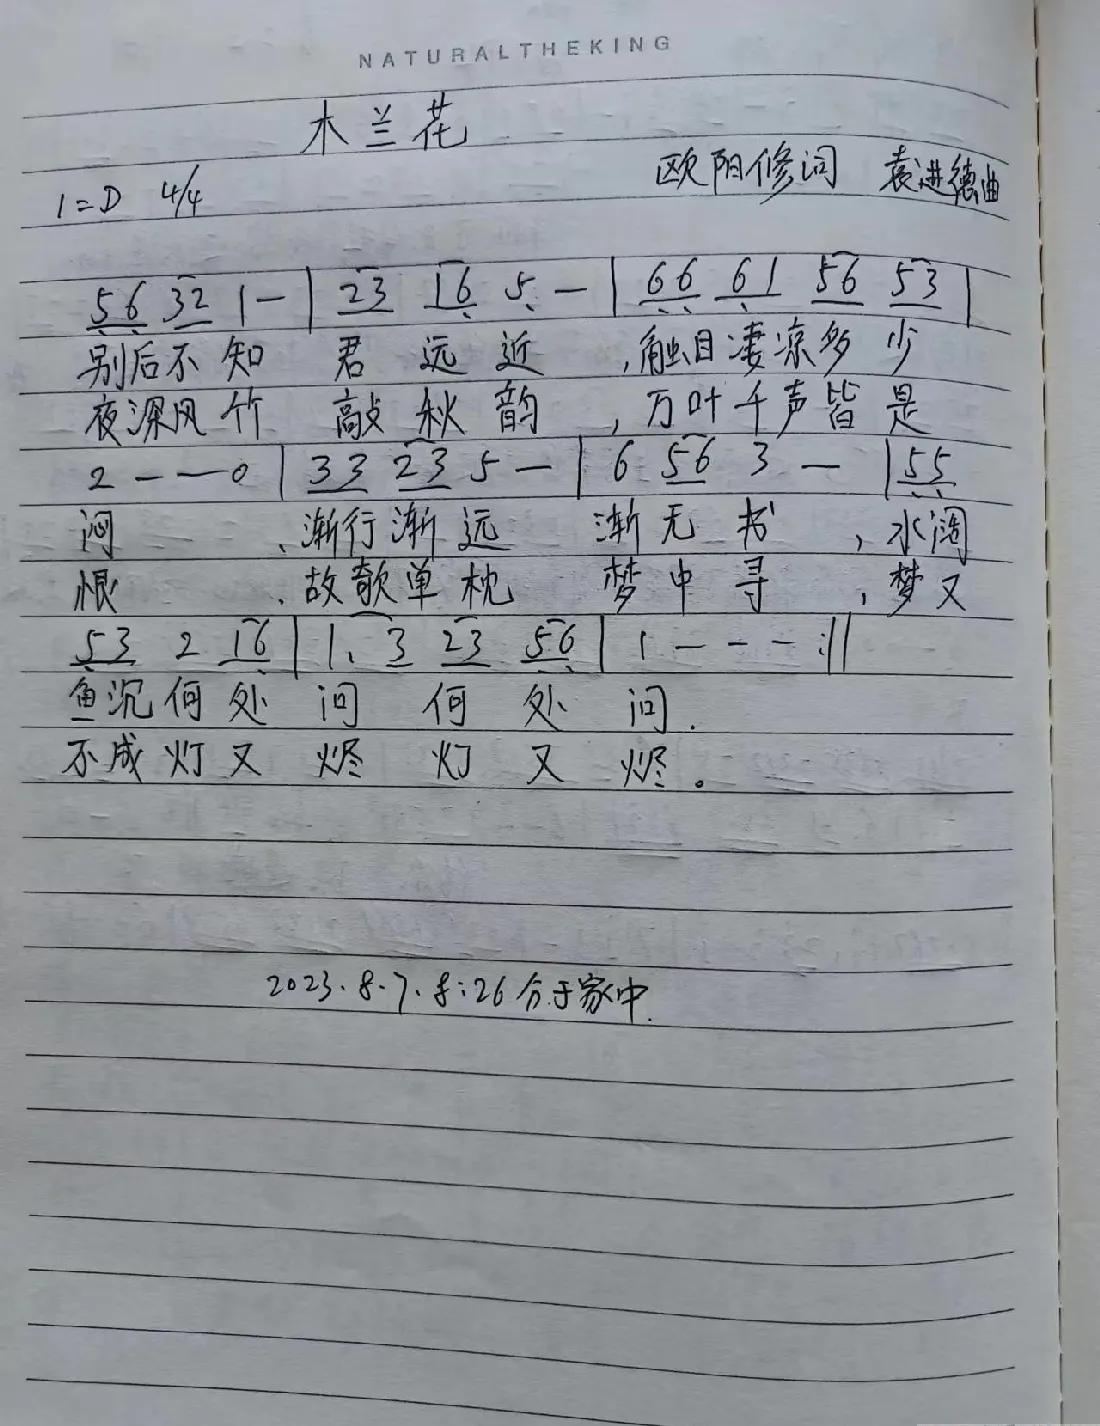 NATURALTHEKING
木兰花
欧阳修词 袁进德曲
1=D 4/4
56 32 1 — | 23 16 5 — | 66 61 56 53 |
别后不知 君远近 ,触目凄凉多少
夜深风竹 敲秋韵 ,万叶千声皆是
2 — — 0 | 33 23 5 — | 6 56 3 — | 55
闷 、渐行渐远 渐无书 ,水阔
恨 、故欹单枕 梦中寻 ,梦又
53 2 16 | 1. 3 23 56 | 1 — — — :||
鱼沉何处 问何处问.
不成灯又 烬灯又烬。
2023.8.7.8:26分于家中.